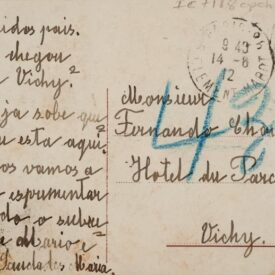 idos pais.
chegou
Vichy?
ja sobe que
esta aqui?
os vamos a
esprumentar
do o subre
Mario e
Saudades Maria.
9 40
14-8
12
Monsieur
Fernando Chav
Hotel du Parc
Vichy.
43